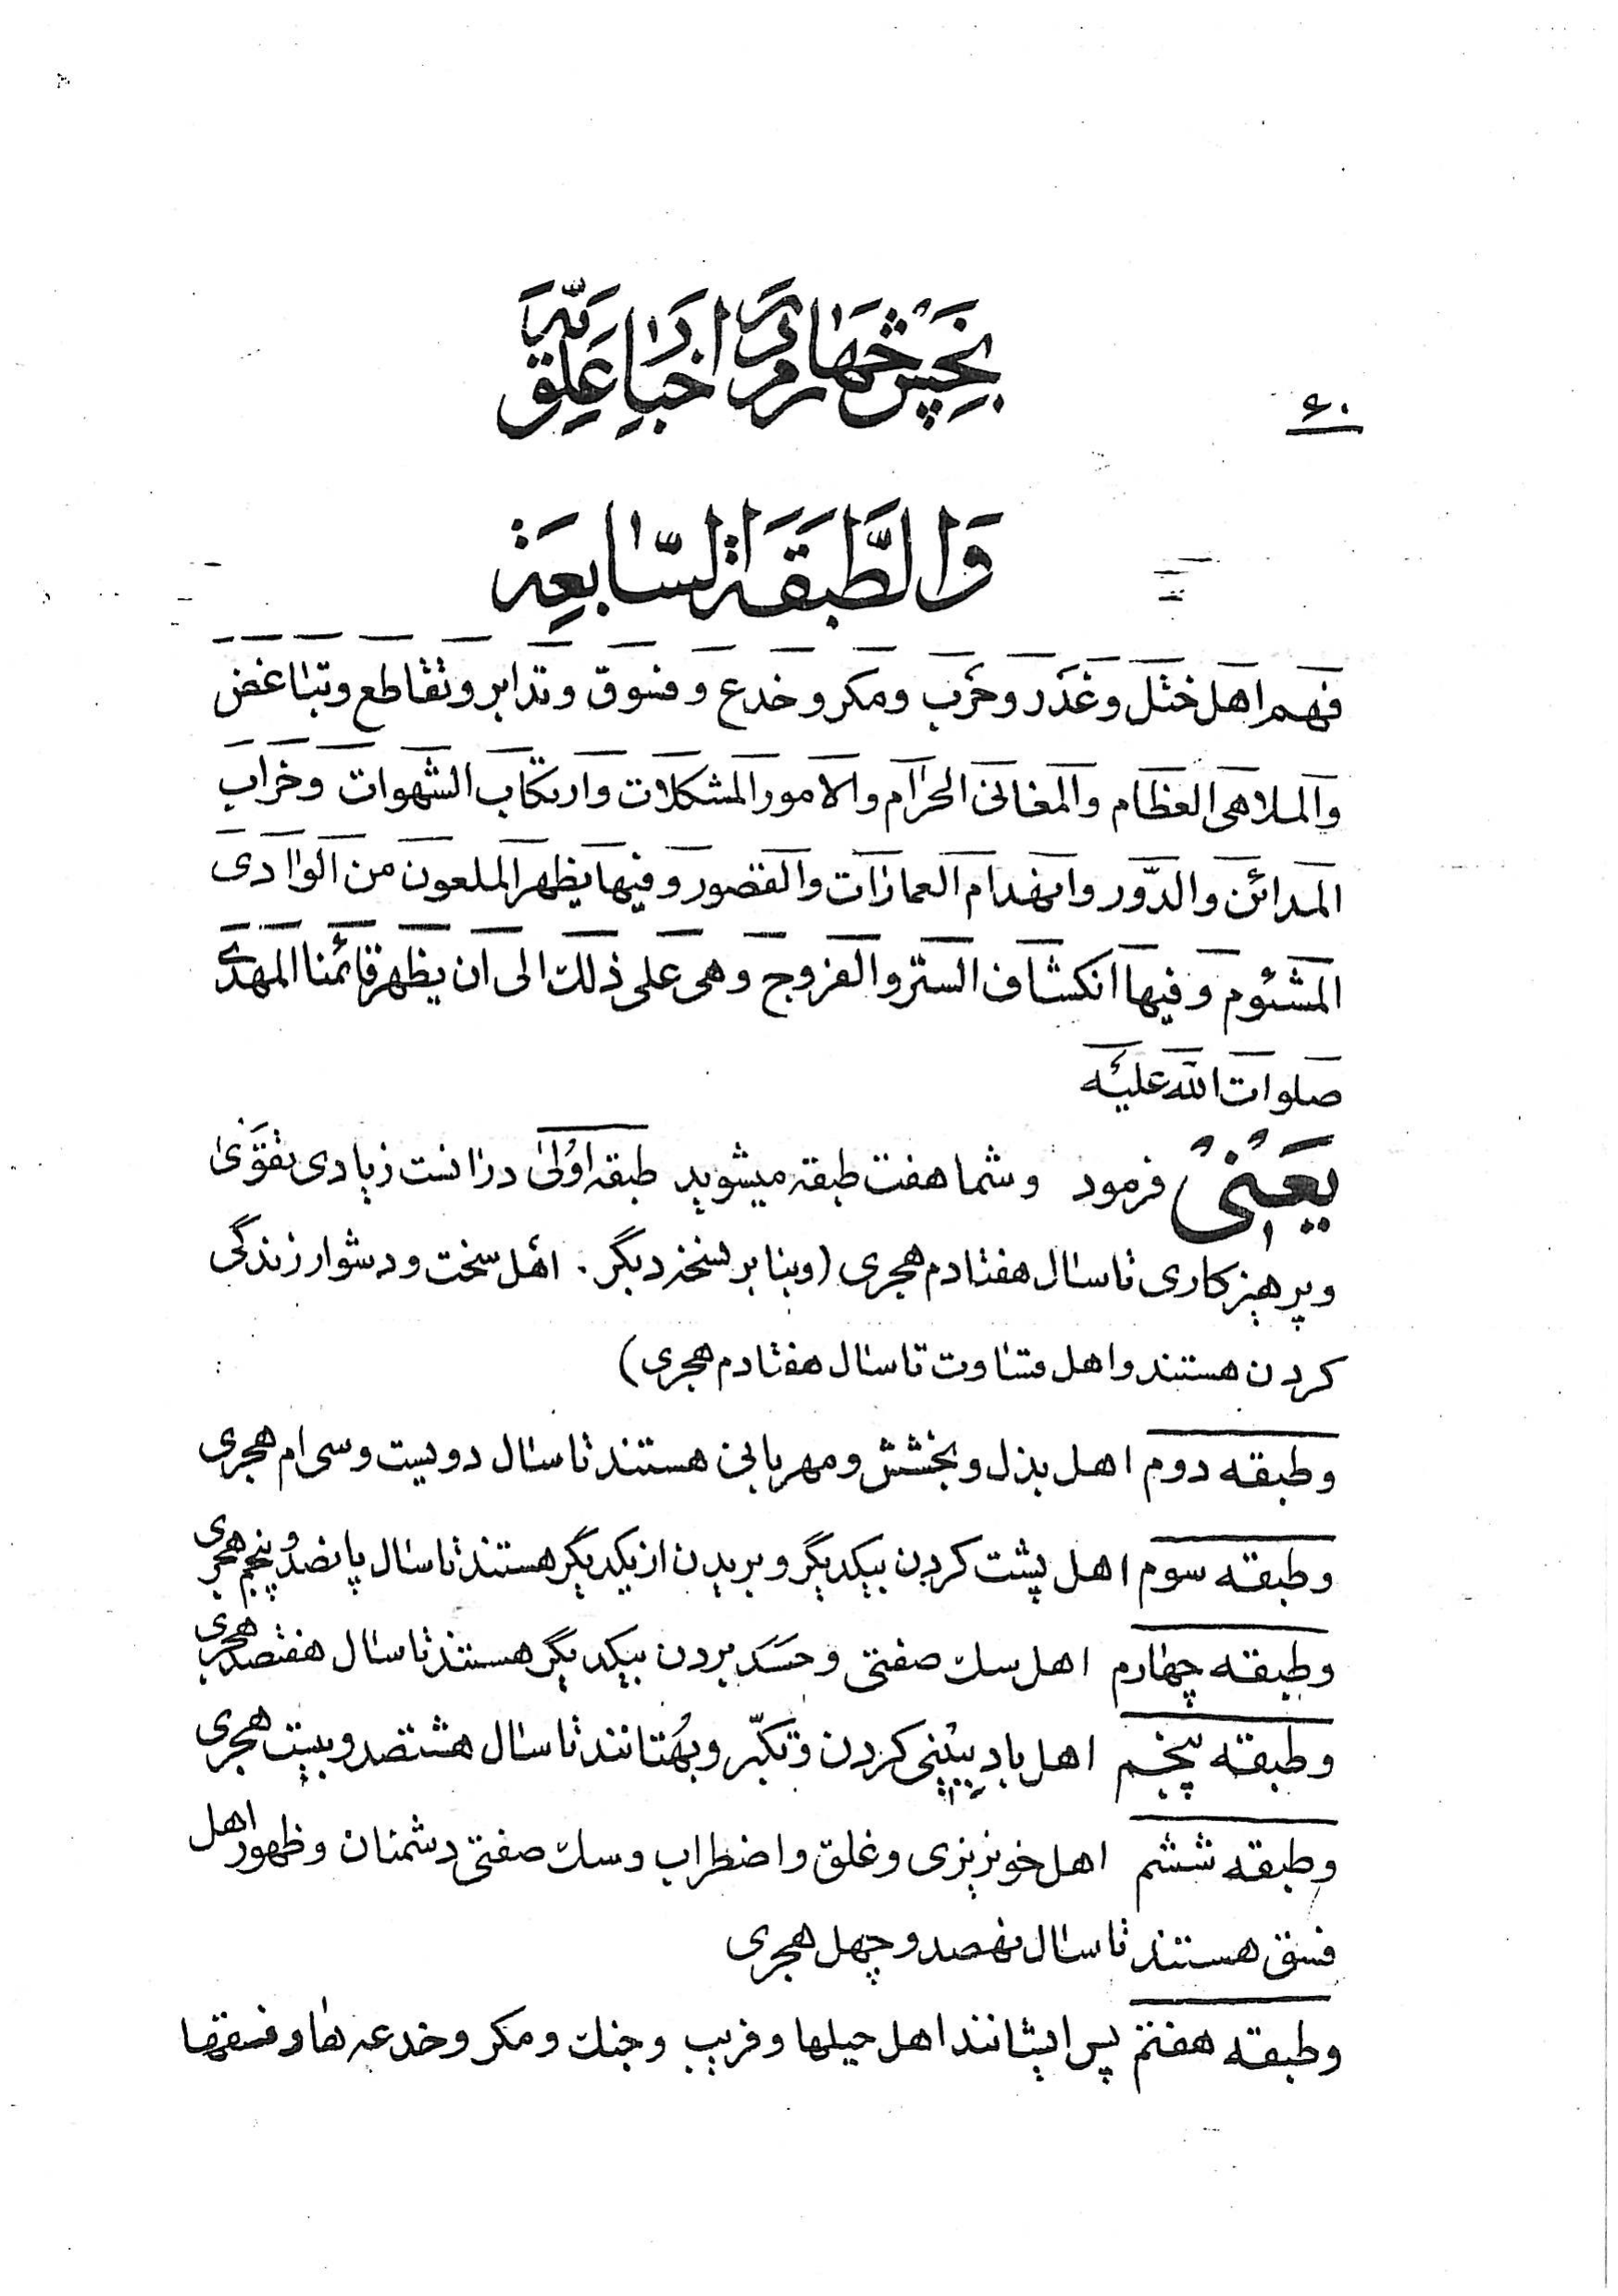 بخش چهارم در اخبار علویّه
۶۰
وَالطَّبَقَةُ السّابِعَة
فهم اهل ختل وغدر وحرب ومكر وخدع وفسوق وتدابر وتقاطع وتباغض
والملاهى العظام والمغانى الحرام والامور المشكلات وارتكاب الشهوات وخراب
المدائن والدّور وانهدام العمارات والقصور وفيها يظهر الملعون من الوادى
المشئوم وفيها انكشاف الستر والفروج وهى على ذلك الى ان يظهر قائمنا المهدىّ
صلوات الله عليه
يَعنى فرمود وشما هفت طبقه ميشويد طبقه اُولى در آنست زيادى تقوى
و پرهيزكارى تا سال هفتادم هجرى (وبنابر نسخه ديگر. اهل سخت و دشوار زندگى
كردن هستند واهل قساوت تا سال هفتادم هجرى)
وطبقه دوم اهل بذل وبخشش ومهربانى هستند تا سال دويست وسى ام هجرى
وطبقه سوم اهل پشت كردن بيكديگر وبريدن از يكديگر هستند تا سال پانصد و پنجم هجرى
وطبقه چهارم اهل سك صفتى وحسد بردن بيكديگر هستند تا سال هفتصد هجرى
وطبقه پنجم اهل بادِ بينى كردن وتكبّر وبُهتانند تا سال هشتصد و بيست هجرى
وطبقه ششم اهل خونريزى وغلق واضطراب وسك صفتى دشمنان وظهور اهل
فسق هستند تا سال نهصد و چهل هجرى
وطبقه هفتم پس ايشانند اهل حيلها وفريب وجنك ومكر وخدعه ها و فسقها